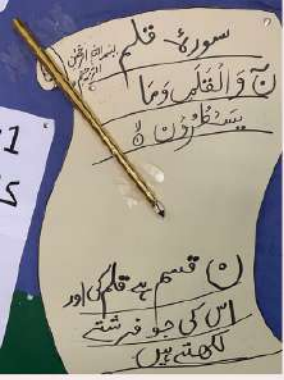 سورۃ قلم
بسم اللہ الرحمٰن الرحیم
نٓ وَالْقَلَمِ وَمَا
يَسْطُرُوْنَ ۙ
(ن) قسم ہے قلم کی اور
اس کی جو فرشتے
لکھتے ہیں